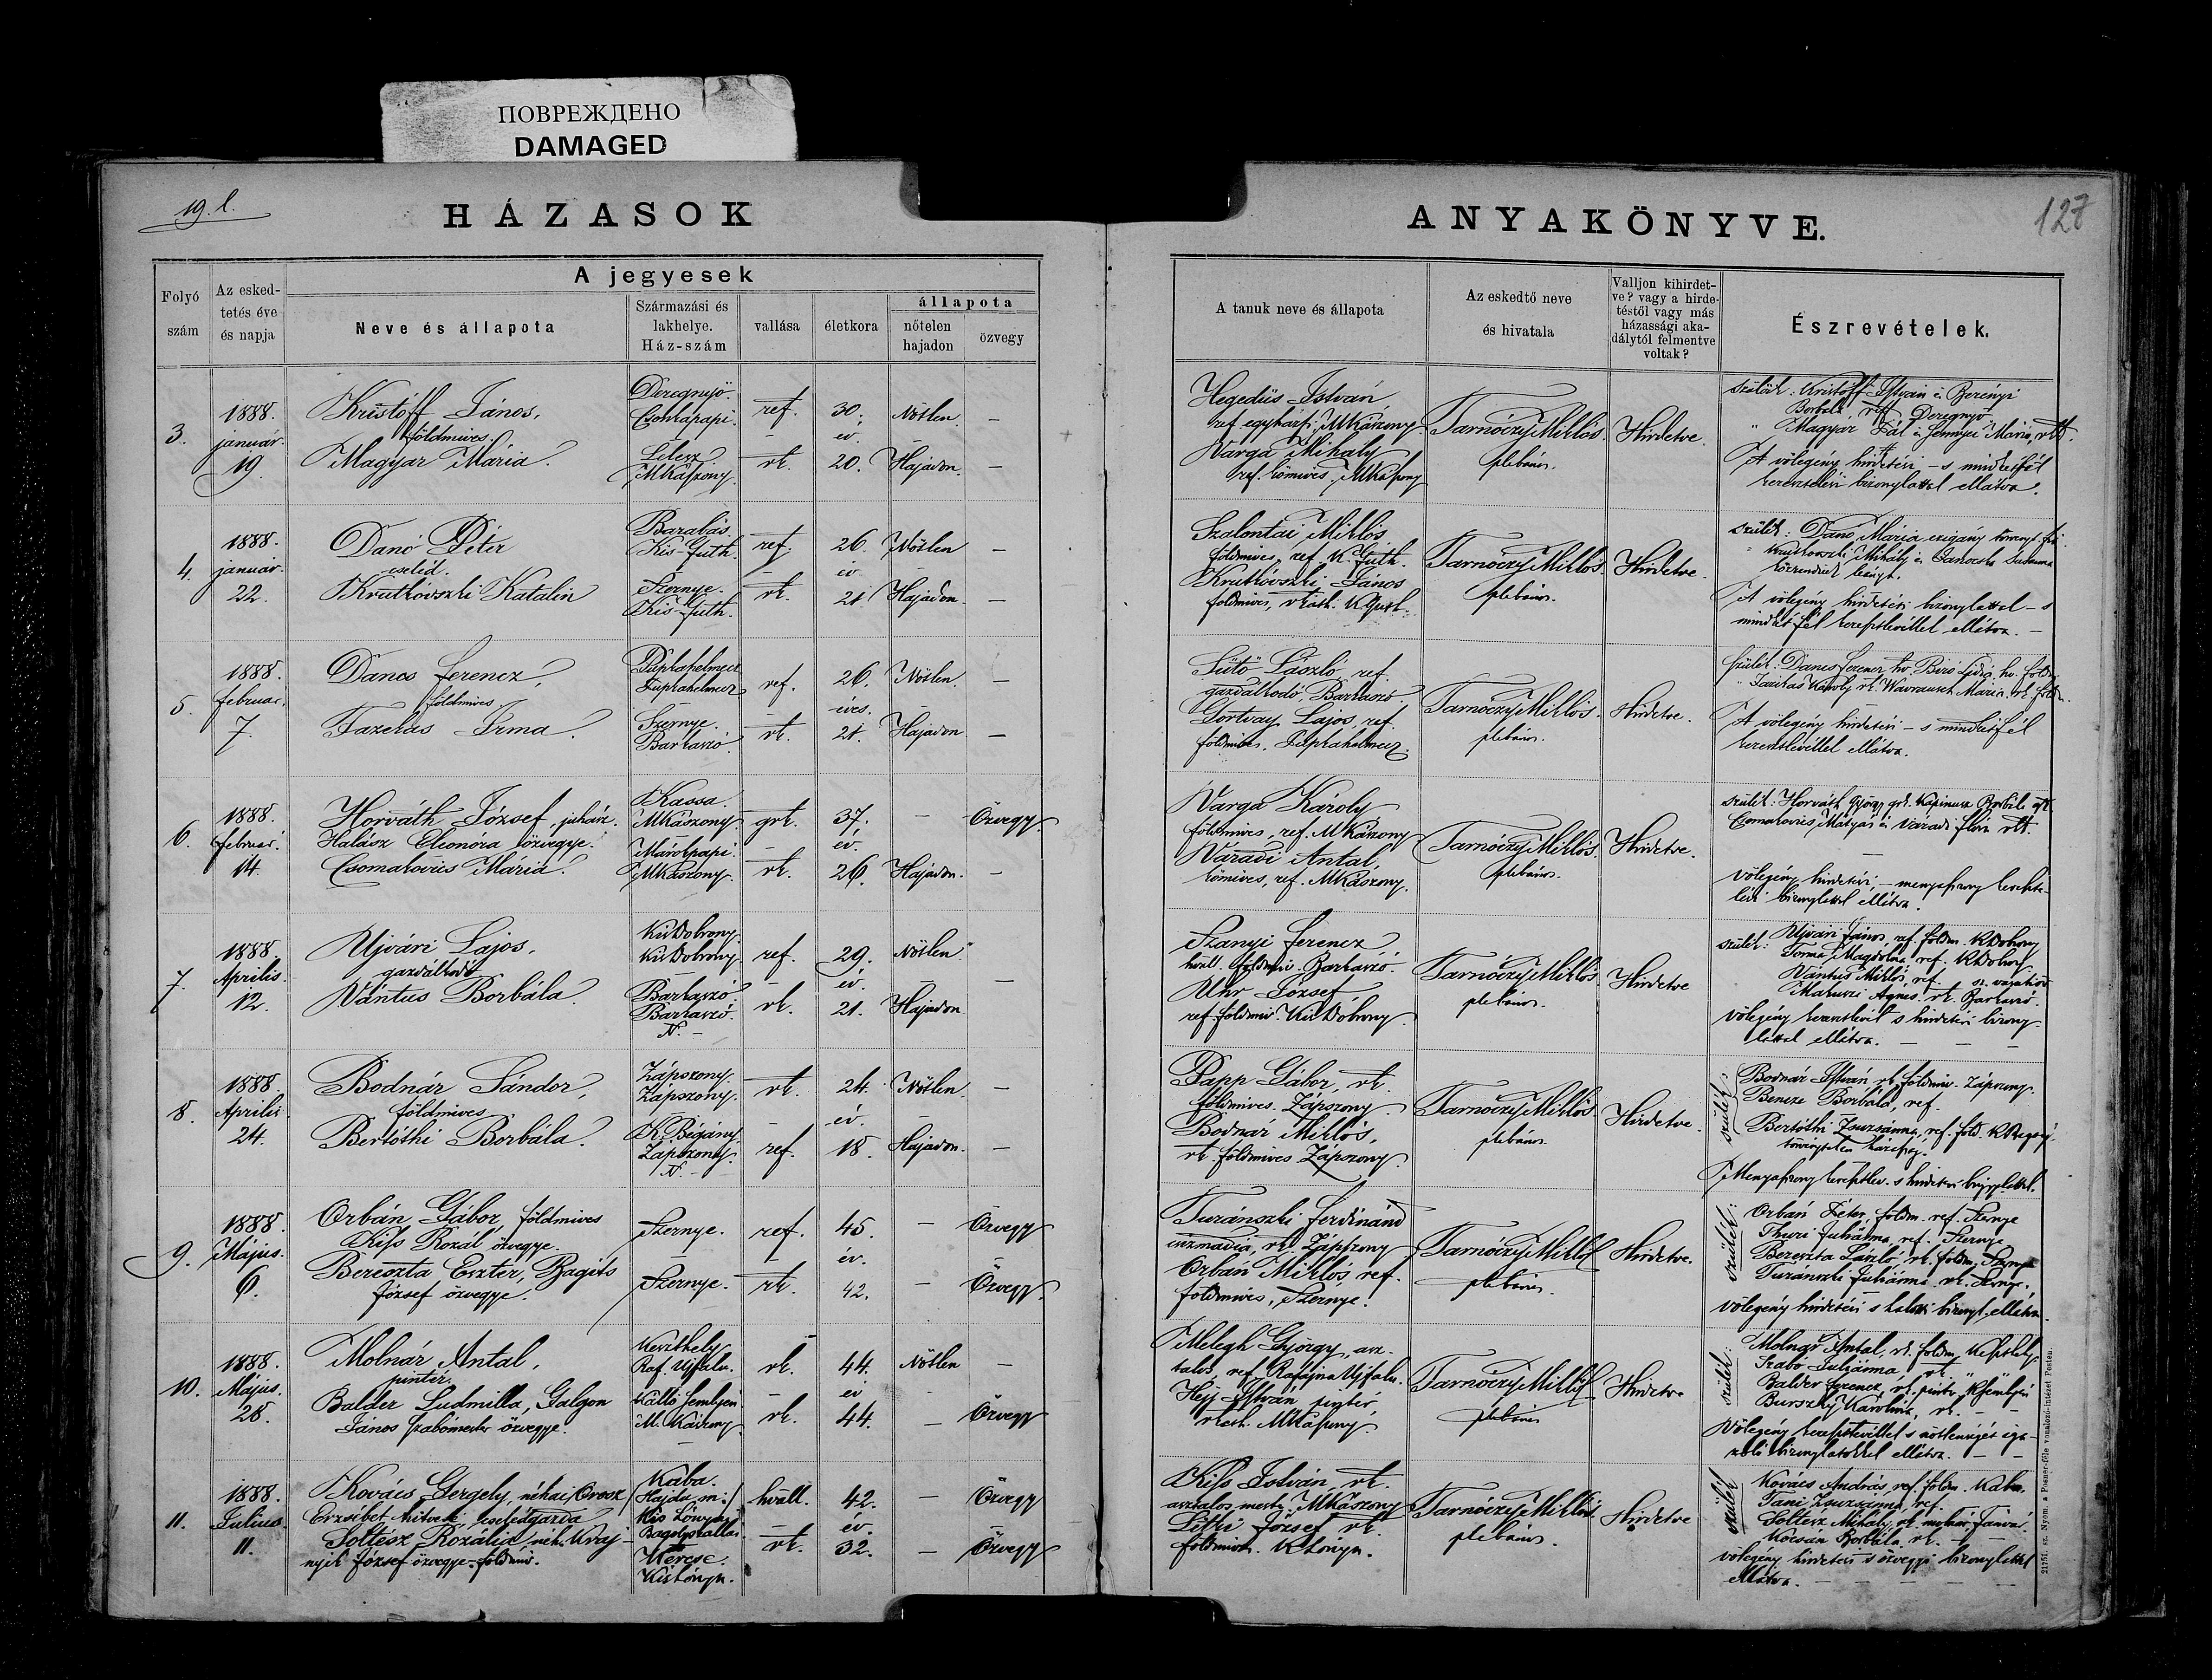 ПОВРЕЖДЕНО
DAMAGED
19. l.
HÁZASOK
ANYAKÖNYVE.
127
Folyó szám
Az esked-
tetés éve
és napja
A jegyesek
Neve és állapota
Származási és
lakhelye.
Ház-szám
vallása
életkora
állapota
nőtelen
hajadon
özvegy
A tanuk neve és állapota
Az eskedtő neve
és hivatala
Valljon kihirdet-
ve? vagy a hirde-
téstől vagy más
házassági aka-
dálytól felmentve
voltak?
Észrevételek.
3.
1888.
január
19
Kristóff János,
földmives.
Magyar Mária.
Deregnyő
Csonkapapi
Lelesz
MKászony.
ref.
rk.
30.
év.
20.
Nőtlen
Hajadon.
Hegedüs István
ref. egyházfi, MKászony.
Varga Mihály
ref. kőmives, MKászony
Tarnóczy Miklós.
plebános.
Hirdetve.
szülők: Kristóff István és Berényi
Borbála, ref. Deregnyő
" Magyar Pál és Mária, rk.
A vőlegény hirdetési – s mindkét fél
keresztelési bizonylattal ellátva.
4.
1888.
január
22.
Danó Péter
cseléd.
Krutkóvszki Katalin
Barabás
Kis-Guth.
Szernye.
Kis-Guth.
ref.
rk.
26.
év
21.
Nőtlen
Hajadon
Szalontai Miklós
földmives, ref. K Guth.
Krutkóvszki János
földmives, rkath. K Guth.
Tarnóczy Miklós.
plebános.
Hirdetve.
szülők: Danó Mária czigány
Krutkovszki Mihály és Susanna
leánya.
A vőlegény hirdetési bizonylattal – s
mindkét fél keresztlevéllel ellátva. –
5.
1888.
február.
7.
Dancs Ferencz,
földmives.
Fazekas Irma.
Püspkahelmecz
Püspkahelmecz
Szernye.
Barkaszó.
ref.
rk.
26.
éves.
21.
Nőtlen.
Hajadon
Sütő László, ref.
gazdálkodó, Barkaszó.
Gortvay Lajos, ref.
földmives,
Tarnóczy Miklós.
plebános.
Hirdetve.
szülők: Dancs Ferencz hv. Biró Lidia hv. földm.
" Károly rk. Mária rk. földm.
A vőlegény hirdetési – s mindkét fél
keresztlevéllel ellátva.
6.
1888.
február.
14.
Horváth József, juhász.
Halász Eleonóra özvegye.
Csomakovics Mária.
Kassa.
MKászony
Márokpapi.
MKászony.
grk.
rk.
37.
év.
26.
Hajadon.
Özvegy.
Varga Károly
földmives, ref. MKászony
Váradi Antal,
kőmives, ref. MKászony.
Tarnóczy Miklós.
plebános.
Hirdetve.
szülők: Horváth György grk. Borbála grk.
Csomakovics Mátyás és Váradi rk.
Vőlegény hirdetési, – menyasszony keresztelési
bizonylattal ellátva.
7.
1888
Április
12.
Ujvári Lajos.
gazdálkodó
Vántus Borbála.
KisDobrony
KisDobrony
Barkaszó
Barkaszó.
N. –
ref.
rk.
29.
év.
21.
Nőtlen
Hajadon
Szanyi Ferencz
hvall. földmiv. Barkaszó.
Uhr József
ref. földmiv. KisDobrony.
Tarnóczy Miklós
plebános.
Hirdetve
szülők: Ujvári János, ref. földm. KDobrony
Torma Magdolna ref. KDobrony
Vántus Miklós, ref.
Ágnes. rk. Barkaszó.
vőlegény keresztlevél s hirdetési bizony-
láttal ellátva.
8.
1888.
Április
24.
Bodnár Sándor,
földmives
Bertóthi Borbála.
Zápszony.
Zápszony.
K. Bégány.
Zápszony.
N. –
rk.
ref.
24.
év.
18.
Nőtlen.
Hajadon.
Papp Gábor, rk.
földmives. Zápszony.
Bodnár Miklós,
rk. földmives Zápszony.
Tarnóczy Miklós
plebános.
Hirdetve.
szülők:
Bodnár István rk. földmiv. Zápszony.
Bencze Borbála, ref.
Bertóthi Zsuzsánna, ref. föld. K Begány.
Menyasszony keresztlev. s hirdetési
9.
1888.
Május.
6.
Orbán Gábor, földmives
Kiss Rozál özvegye.
Bereszta Eszter, Bagits
József özvegye.
Szernye.
Szernye.
ref.
rk.
45.
év.
42.
Özvegy
Özvegy.
Turánszki Ferdinánd
csizmadia, rk. Zápszony
Orbán Miklós ref.
földmives, Szernye.
Tarnóczy Miklós
plebános.
Hirdetve.
szülők:
Orbán Péter, földm. ref. Szernye
Thuri Juliánna, ref. Szernye
Bereszta László, rk. földm. Szernye
Turánszki Juliánna rk. Szernye.
Vőlegény hirdetési s halotti bizonyl. ellátva.
10.
1888.
Május.
28.
Molnár Antal,
pintér.
Balder Ludmilla, Galgon
János szabómester özvegye.
Keszthely
Raf. Ujfalu.
Kálló Semlyén
M. Kászony
rk.
rk.
44.
év
44.
Nőtlen
Özvegy
Melegh György, asz-
talos, ref., Rafajna Ujfalu.
Hey István pintér
rkath. MKászony.
Tarnóczy Miklós
plebános
Hirdetve
szülők:
Molnár Antal, rk. földm. Keszthely.
Szabó Juliánna, rk.
Balder Ferencz, rk. pintér KSemlyén
Burszky Karolina, rk.
Vőlegény keresztlevéllel s nőtlenségét iga-
zoló bizonylatokkal ellátva.
11.
1888.
Julius
11.
Kovács Gergely, néhai Orosz
Erzsébet hitvese, cselédgazda
Soltész Rozália, néh. Kraj-
nyik József özvegye. földmiv.
Kaba.
/Hajdu m:/
Kis Lónya.
Kerecse.
Kislónya.
hvall.
rk.
42.
év.
32.
Özvegy
Özvegy
Kiss István rk.
asztalos mester, MKászony
József rk.
földmives. KLónya.
Tarnóczy Miklós.
plebános.
Hirdetve
szülők
Kovács András, ref. földm. Kaba.
Zsuzsanna, ref.
Soltész Mihály, rk. molnár
Borbála, rk.
vőlegény hirdetési s özvegyi bizonylattal
ellátva.
2175l. sz. Nyom. a Posner-féle vonalozó-intézet Pesten.